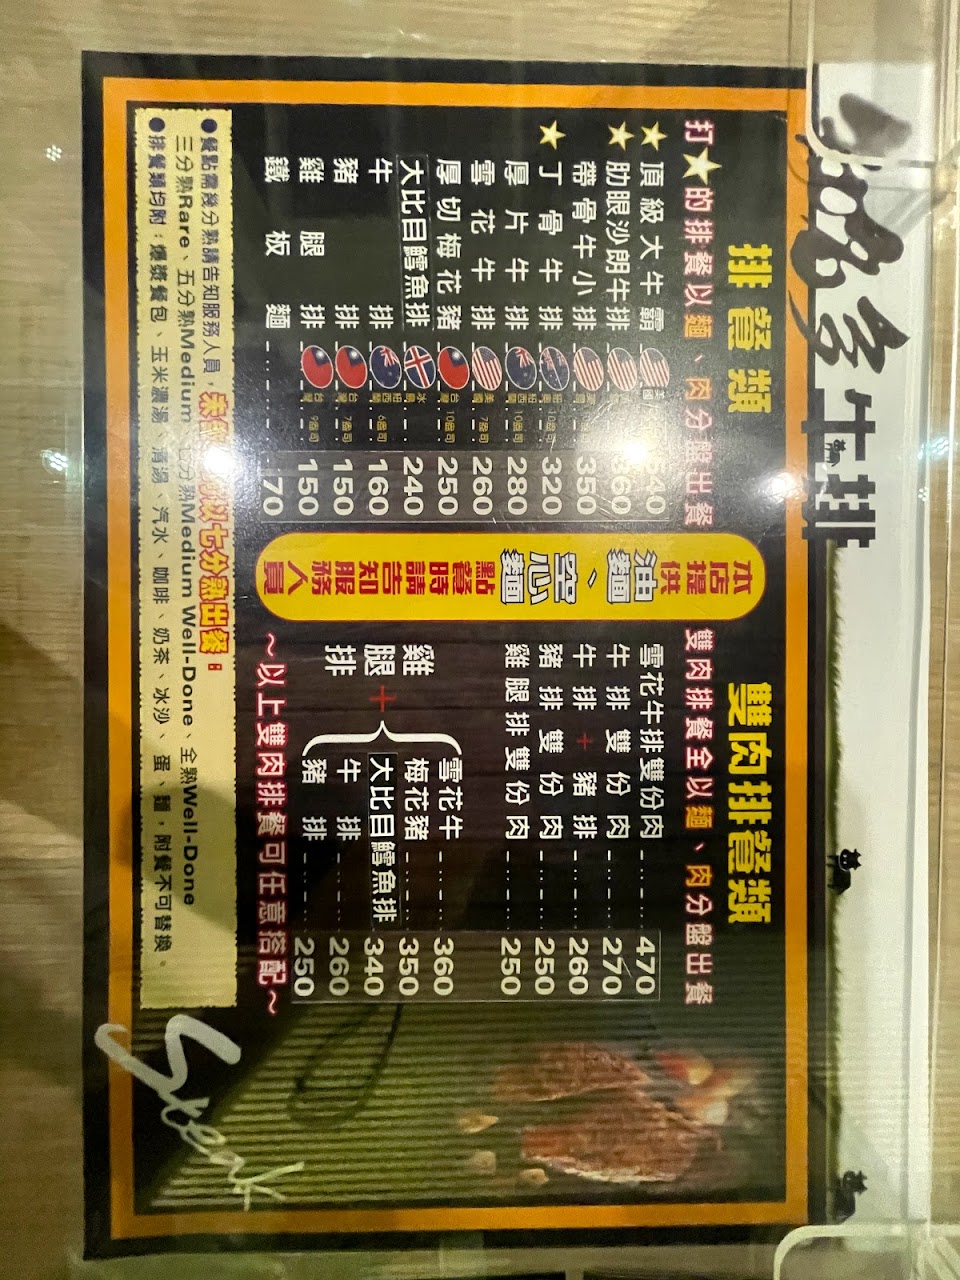 牛排
排餐類
打★的排餐以麵、肉分盤出餐
★頂級大牛霸 美國 540
★肋眼沙朗牛排 360
帶骨牛小排 350
★丁骨牛排 10盎司 320
厚片牛排 紐西蘭 10盎司 280
雪花牛排 美國 7盎司 260
厚切梅花豬 台灣 10盎司 250
大比目鱈魚排 冰島 240
牛排 紐西蘭 6盎司 160
豬排 台灣 7盎司 150
雞腿排 台灣 9盎司 150
鐵板麵 70
本店提供
油麵、空心麵
點餐時請告知服務人員
雙肉排餐類
雙肉排餐全以麵、肉分盤出餐
雪花牛排雙份肉 470
牛排雙份肉 270
牛排+豬排 260
豬排雙份肉 250
雞腿排雙份肉 250
雞腿排+
雪花牛 360
梅花豬 350
大比目鱈魚排 340
牛排 260
豬排 250
~以上雙肉排餐可任意搭配~
●餐點需幾分熟請告知服務人員,未以七分熟出餐:
三分熟Rare、五分熟Medium、七分熟Medium Well-Done、全熟Well-Done
●排餐類均附:爆漿餐包、玉米濃湯、清湯、汽水、咖啡、奶茶、冰沙、蛋、麵,附餐不可替換。
Steak